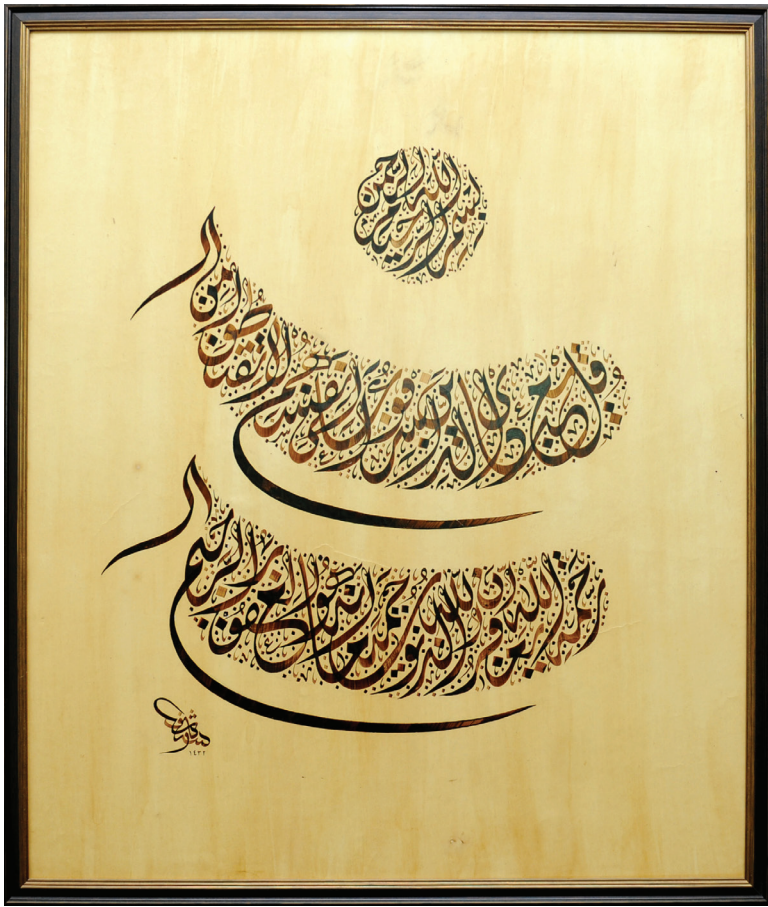 بسم الله الرحمن الرحيم
قل يعبادي الذين أسرفوا على أنفسهم لا تقنطوا من
رحمة الله إن الله يغفر الذنوب جميعا إنه هو الغفور الرحيم
١٤٣٢